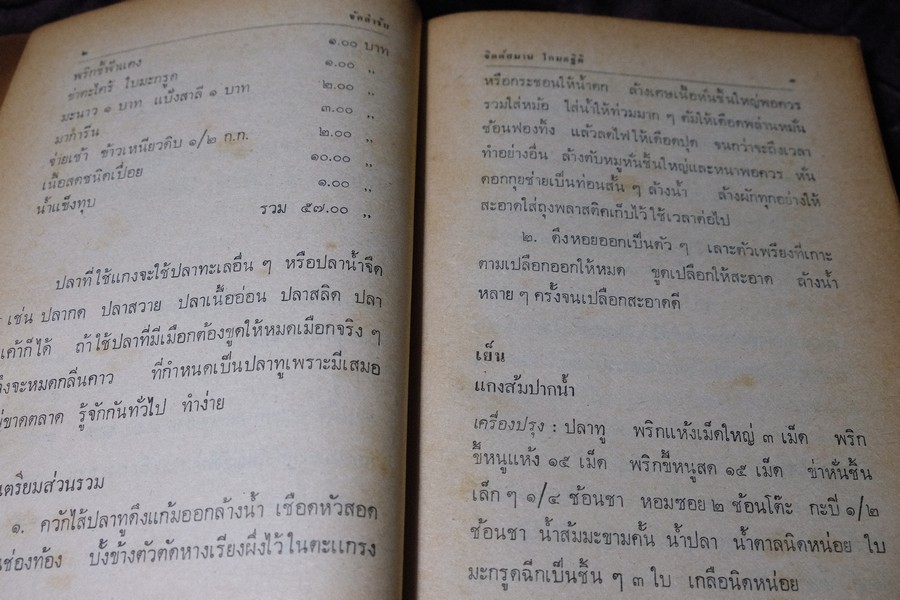 ๒
จัดสำรับ
พริกชี้ฟ้าแดง ๑.๐๐ บาท
ข่าตะไคร้ ใบมะกรูด ๑.๐๐ ,,
มะนาว ๑ บาท แป้งสาลี ๑ บาท ๒.๐๐ ,,
มาการีน ๓.๐๐ ,,
จ่ายเช้า ข้าวเหนียวดิบ ๑/๒ ก.ก. ๒.๐๐ ,,
เนื้อสดชนิดเปื่อย ๑๐.๐๐ ,,
น้ำแข็งทุบ ๑.๐๐ ,,
รวม ๕๗.๐๐ ,,
ปลาที่ใช้แกงจะใช้ปลาทะเลอื่น ๆ หรือปลาน้ำจืด
เช่น ปลากด ปลาสวาย ปลาเนื้ออ่อน ปลาสลิด ปลา
เค้าก็ได้ ถ้าใช้ปลาที่มีเมือกต้องขูดให้หมดเมือกจริง ๆ
จึงจะหมดกลิ่นคาว ที่กำหนดเป็นปลาทูเพราะมีเสมอ
ไม่ขาดตลาด รู้จักกันทั่วไป ทำง่าย
เตรียมส่วนรวม
๑. ควักไส้ปลาทูดึงแก้มออกล้างน้ำ เชือดหัวสอด
ช่องท้อง บั้งข้างตัวตัดหางเรียงผึ่งไว้ในตะแกรง
จิตต์สมาน โกมลฐิติ
๓
หรือกระชอนให้น้ำตก ล้างเศษเนื้อหั่นชิ้นใหญ่พอควร
รวมใส่หม้อ ใส่น้ำให้ท่วมมาก ๆ ต้มให้เดือดพล่านหมั่น
ช้อนฟองทิ้ง แล้วลดไฟให้เดือดปุด จนกว่าจะถึงเวลา
ทำอย่างอื่น ล้างตับหมูหั่นชิ้นใหญ่และหนาพอควร หั่น
ดอกกุยช่ายเป็นท่อนสั้น ๆ ล้างน้ำ ล้างผักทุกอย่างให้
สะอาดใส่ถุงพลาสติคเก็บไว้ใช้เวลาต่อไป
๒. ดึงหอยออกเป็นตัว ๆ เลาะตัวเพรียงที่เกาะ
ตามเปลือกออกให้หมด ขูดเปลือกให้สะอาด ล้างน้ำ
หลาย ๆ ครั้งจนเปลือกสะอาดดี
เย็น
แกงส้มปากน้ำ
เครื่องปรุง : ปลาทู พริกแห้งเม็ดใหญ่ ๓ เม็ด พริก
ขี้หนูแห้ง ๑๕ เม็ด พริกขี้หนูสด ๑๕ เม็ด ข่าหั่นชิ้น
เล็ก ๆ ๑/๔ ช้อนชา หอมซอย ๒ ช้อนโต๊ะ กะปิ ๑/๒
ช้อนชา น้ำส้มมะขามคั้น น้ำปลา น้ำตาลนิดหน่อย ใบ
มะกรูดฉีกเป็นชิ้น ๆ ๓ ใบ เกลือนิดหน่อย